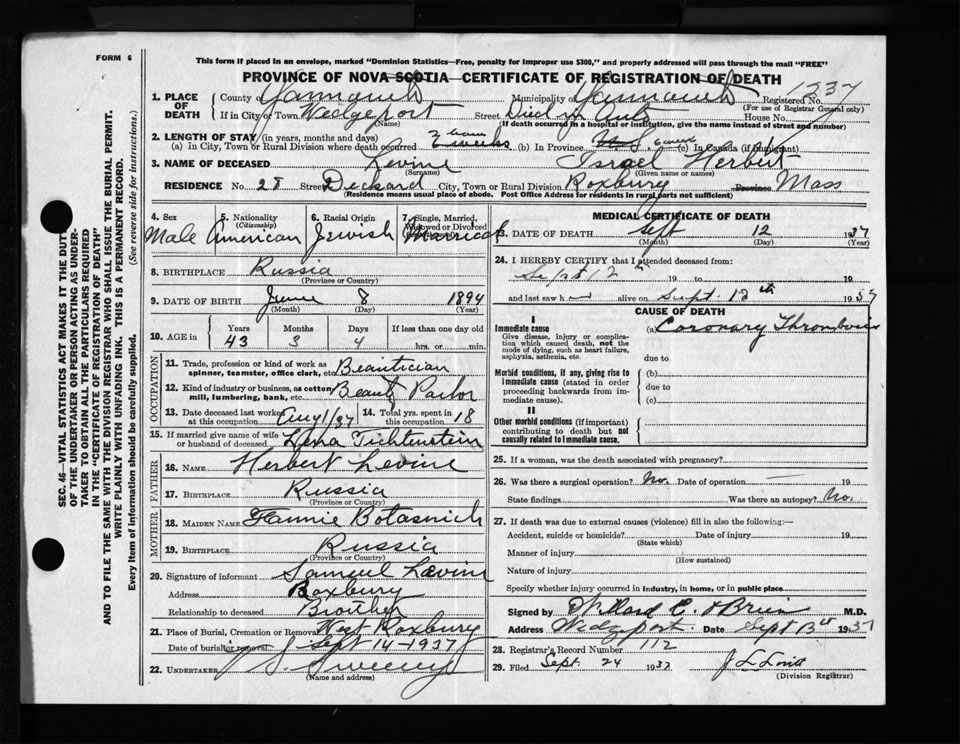 FORM 6
This form if placed in an envelope, marked "Dominion Statistics—Free, penalty for improper use $300," and properly addressed will pass through the mail "FREE"
PROVINCE OF NOVA SCOTIA—CERTIFICATE OF REGISTRATION OF DEATH
1. PLACE OF DEATH
County of Yarmouth Municipality of Yarmouth Registered No. 1337
(For use of Registrar General only)
If in City or Town Wedgeport Street Died in Auto House No.
(Name) (If death occurred in a hospital or institution, give the name instead of street and number)
2. LENGTH OF STAY (in years, months and days)
(a) In City, Town or Rural Division where death occurred 2 weeks (b) In Province (c) In Canada (if immigrant)
3. NAME OF DECEASED Levine Israel Herbert
(Surname) (Given name or names)
RESIDENCE No. 28 Street Deckard City, Town or Rural Division Roxbury Province Mass
(Residence means usual place of abode. Post Office Address for residents in rural parts not sufficient)
4. Sex Male
5. Nationality (Citizenship) American
6. Racial Origin Jewish
7. Single, Married, Widowed or Divorced Married
8. BIRTHPLACE Russia
(Province or Country)
9. DATE OF BIRTH June 8 1894
(Month) (Day) (Year)
10. AGE in Years Months Days If less than one day
43 3 4 hrs. or min.
OCCUPATION
11. Trade, profession or kind of work as spinner, teamster, office clerk, etc. Beautician
12. Kind of industry or business, as cotton mill, lumbering, bank, etc. Beauty Parlor
13. Date deceased last worked at this occupation Aug 1/37
14. Total yrs. spent in this occupation 18
15. If married give name of wife or husband of deceased Lena Tichtenstein
FATHER
16. NAME Herbert Levine
17. BIRTHPLACE Russia
(Province or Country)
MOTHER
18. MAIDEN NAME Fannie Botasnich
19. BIRTHPLACE Russia
(Province or Country)
20. Signature of informant Samuel Levine
Address Roxbury
Relationship to deceased Brother
21. Place of Burial, Cremation or Removal West Roxbury
Date of burial or removal Sept 14-1937
22. UNDERTAKER Sweeney
(Name and address)
MEDICAL CERTIFICATE OF DEATH
23. DATE OF DEATH Sept 12 1937
(Month) (Day) (Year)
24. I HEREBY CERTIFY that I attended deceased from:
Sept 12th 19 to 19
and last saw h alive on Sept. 12th 1937
CAUSE OF DEATH
I
Immediate cause (a) Coronary Thrombosis
Give disease, injury or complication which caused death, not the mode of dying, such as heart failure, asphyxia, asthenia, etc.
due to
Morbid conditions, if any, giving rise to immediate cause (stated in order proceeding backwards from immediate cause).
(b)
due to
(c)
II
Other morbid conditions (if important) contributing to death but not causally related to immediate cause.
25. If a woman, was the death associated with pregnancy?
26. Was there a surgical operation? No. Date of operation — 19
State findings Was there an autopsy? No.
27. If death was due to external causes (violence) fill in also the following:—
Accident, suicide or homicide? Date of injury 19
(State which)
Manner of injury
(How sustained)
Nature of injury
Specify whether injury occurred in Industry, in home, or in public place
Signed by Willard C. O'Brien M.D.
Address Wedgeport Date Sept 13th 1937
28. Registrar's Record Number 112
29. Filed Sept. 24 1937
(Division Registrar)
SEC. 46—VITAL STATISTICS ACT MAKES IT THE DUTY OF THE UNDERTAKER OR PERSON ACTING AS UNDERTAKER TO OBTAIN ALL THE PARTICULARS REQUIRED IN THE "CERTIFICATE OF REGISTRATION OF DEATH" AND TO FILE THE SAME WITH THE DIVISION REGISTRAR WHO SHALL ISSUE THE BURIAL PERMIT.
WRITE PLAINLY WITH UNFADING INK. THIS IS A PERMANENT RECORD.
Every item of information should be carefully supplied. (See reverse side for instructions.)